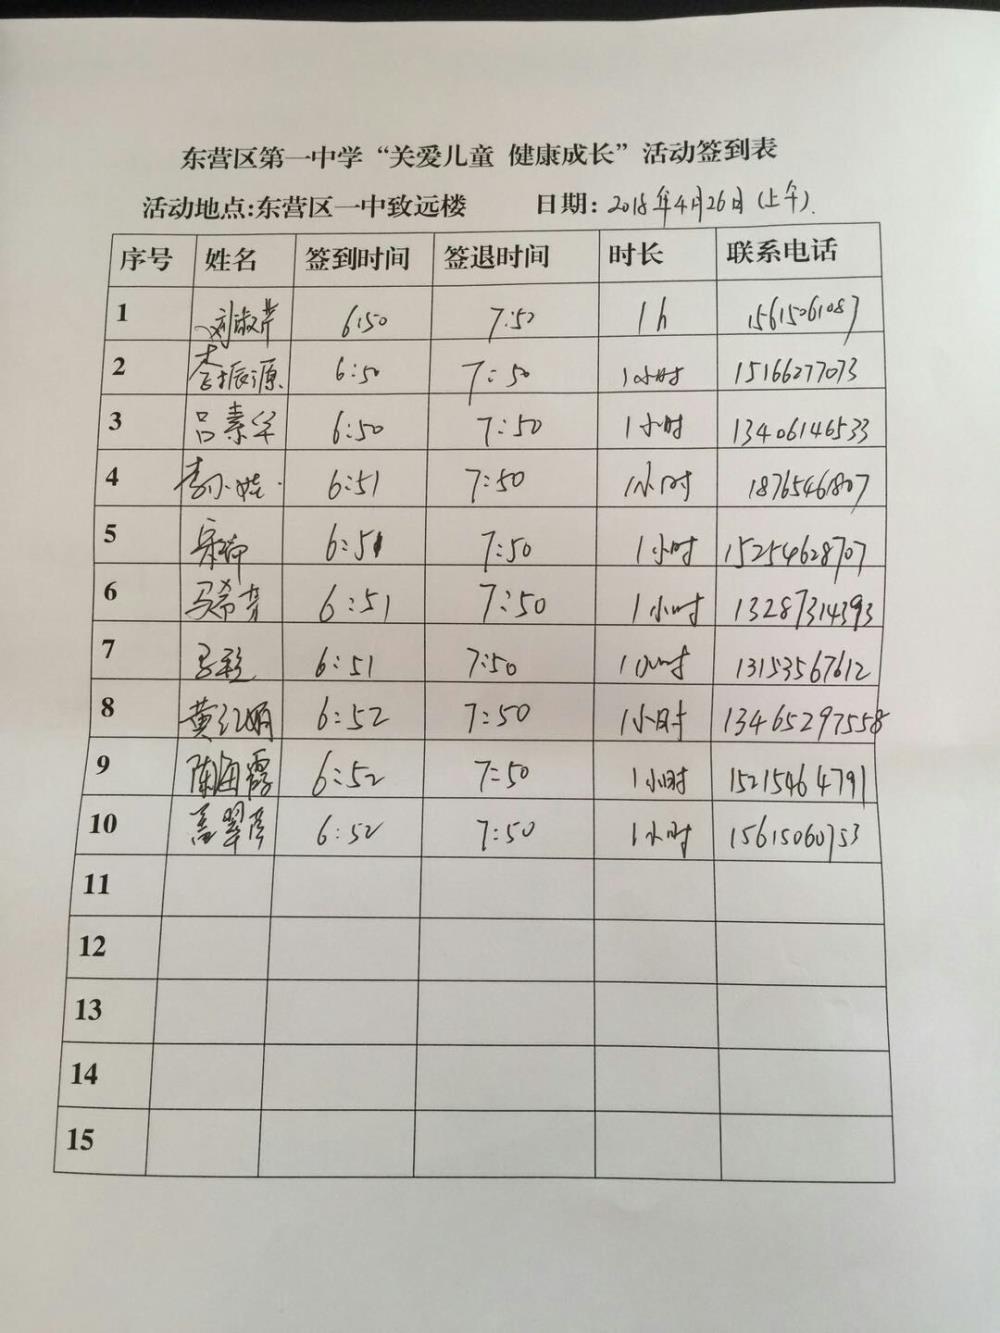 东营区第一中学“关爱儿童 健康成长”活动签到表
活动地点:东营区一中致远楼 日期: 2018年4月26日(上午).
序号 姓名 签到时间 签退时间 时长 联系电话
1 刘淑芹 6:50 7:50 1h 15615061087
2 李振源 6:50 7:50 1小时 15166277073
3 吕素华 6:50 7:50 1小时 13406146533
4 6:51 7:50 1小时 18765461807
5 6:51 7:50 1小时 15254628707
6 马希芳 6:51 7:50 1小时 13287314393
7 6:51 7:50 1小时 13153567612
8 黄红娟 6:52 7:50 1小时 13465297558
9 陈海霞 6:52 7:50 1小时 15215464791
10 盖翠彦 6:52 7:50 1小时 15615060753
11
12
13
14
15